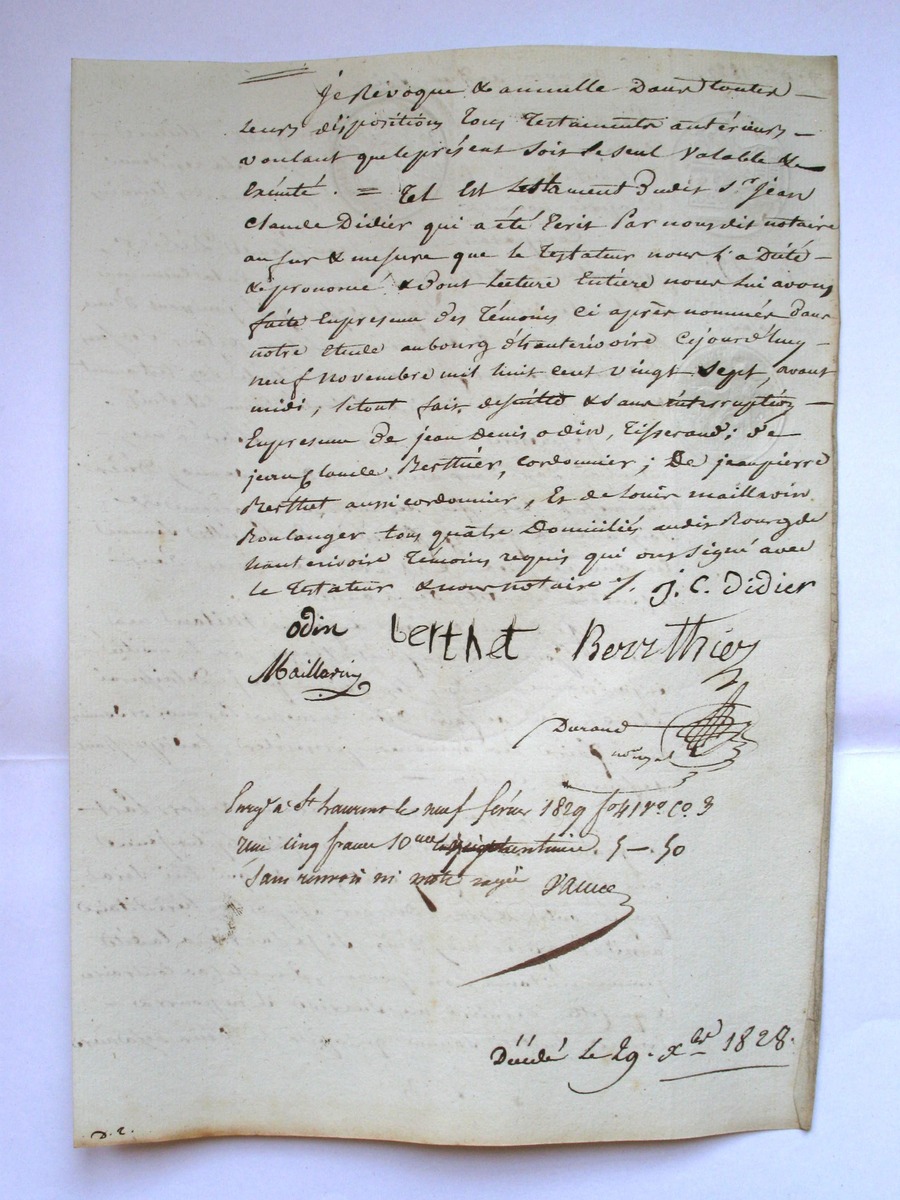 Je Révoque & annulle Dans toutes
leurs dispositions tous testaments antérieurs
voulant que le présent soit le seul valable &
Exécuté. = Tel est testament dudit Sr. Jean
Claude Didier qui a été Ecrit par nous dit notaire
au fur & mesure que le testateur nous l'a Dicté
& prononcé & dont Lecture Entière nous lui avons
faite En presence des Témoins Ci après nommés dans
notre etude au bourg d'hauterivoire Cejourd'huy
neuf novembre mil huit cent vingt sept, avant
midi, le tout fait de suitte & sans interruption
En presence de jean Denis odin, Tisserand; de
jean Claude Berthier, cordonnier; De jean pierre
Berthet aussi cordonnier, Et de Louis maillavin
Boulanger tous quatre Domiciliés audit Bourg de
hauterivoire Témoins requis qui ont signé avec
le testateur & nous notaire ./. J. C. Didier
odin berthet Berrthier
Maillavin
Durand
Enregé à St Laurent le neuf février 1829 fo 41 ro Co 3
Reçu cinq francs 10me centimes. 5 – 50
Sans renvoi ni mot rayé
Décédé le 29. xbre 1828.
D. 2.